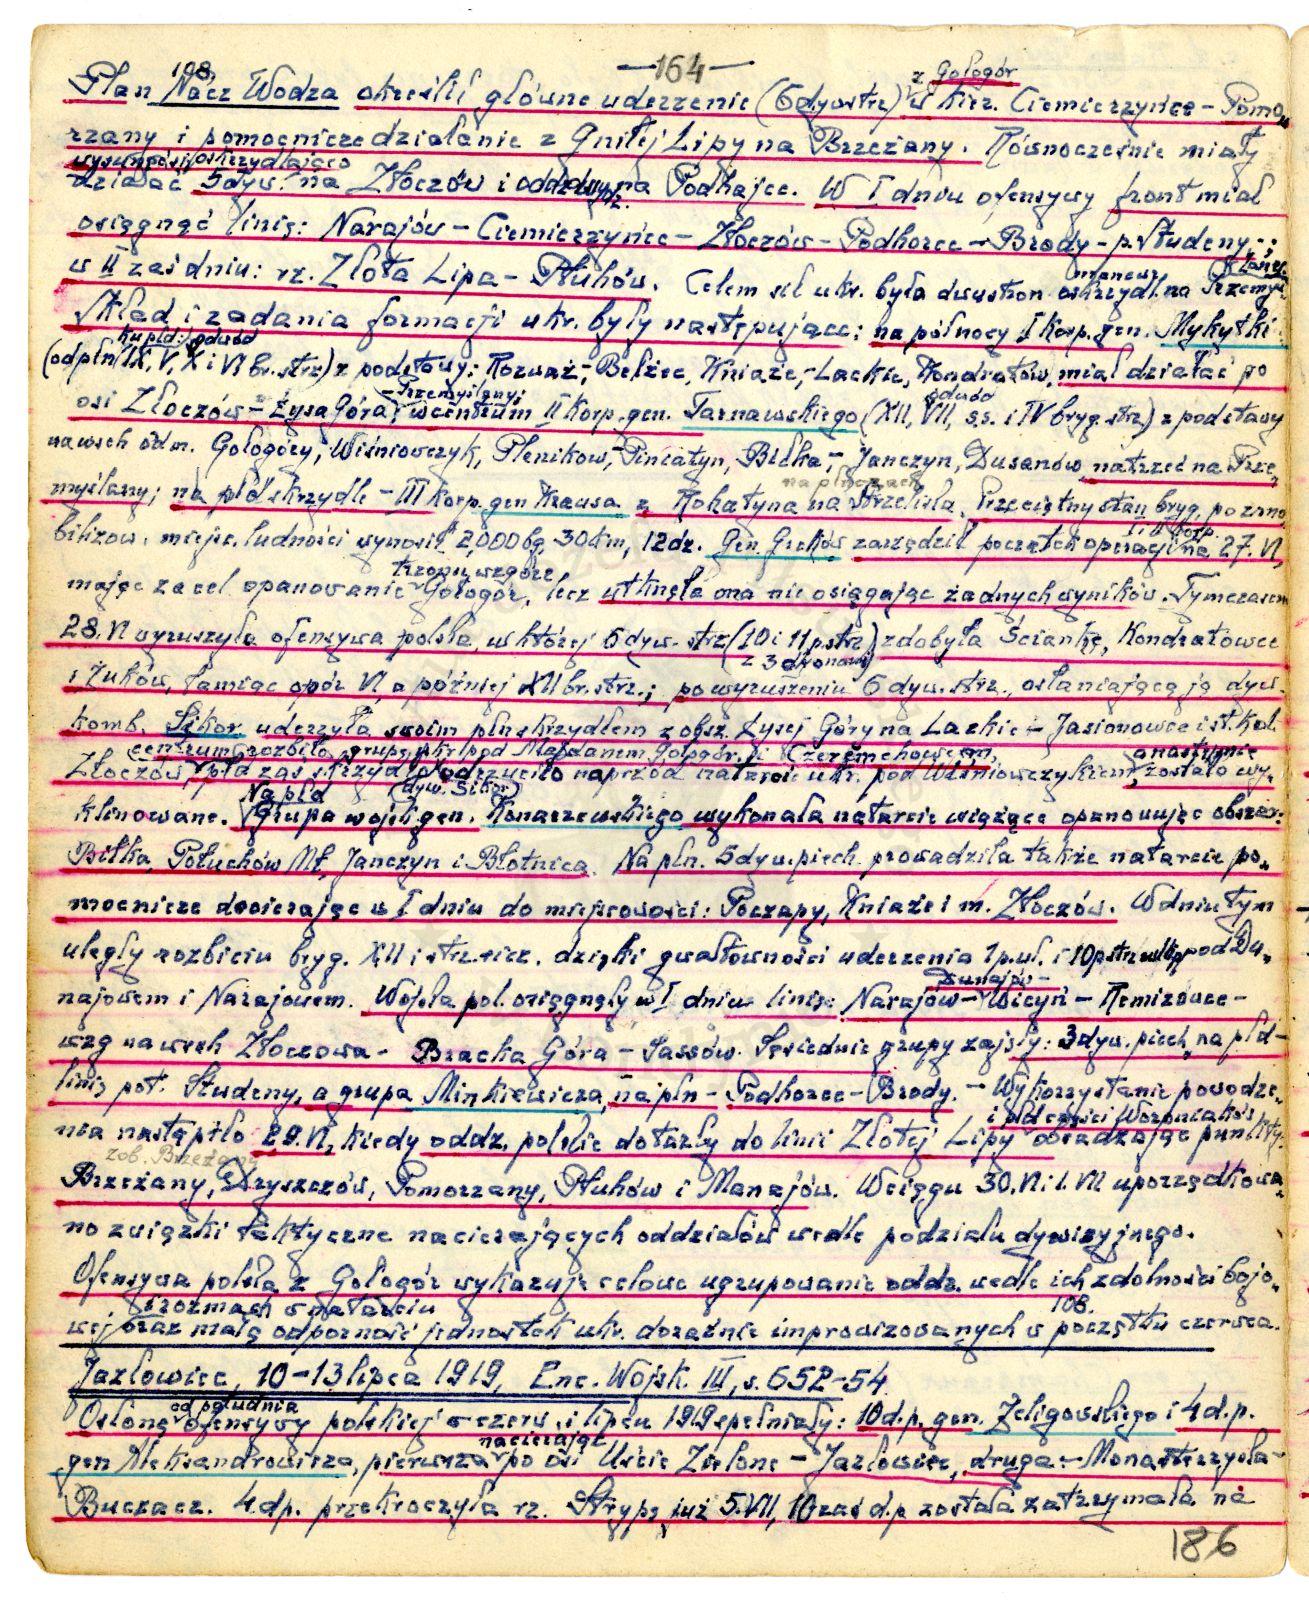 —164—
108. z Gołogór
Plan Nacz Wodza określił główne uderzenie (6 dyw strz) w kier. Ciemierzyńce – Pomo„
rzany i pomocnicze działanie z Gniłej Lipy na Brzeżany. Równocześnie miały
wysunięciu oskrzydlająco
działać 5 dyw. na Złoczów i oddz. wydz. na Podhajce. W I dniu ofensywy front miał
osiągnąć linię: Narajów – Ciemierzyńce – Złoczów – Podhorce – Brody – p. Studeny;
w II zaś dniu: rz. Złota Lipa – Płuhów. Celem sił ukr. było dwustron. manewr oskrzydl. na Przemyśl.
Skład i zadania formacji ukr. były następujące: na północy I Korp. gen. Mykytki
ku płd: odwód
(od płn IX, V, X i VI br. strz) z podstawy: Rozważ, – Bełżec, Kniaże, – Lackie, Kondratów, miał działać po
– Przemyślany; odwód
osi Złoczów – Łysa Góra; w centrum II Korp. gen. Tarnawskiego (XII, VII, s.s. i IV bryg. strz) z podstawy
na wsch od m. Gołogóry, Wiśniowczyk, Plenikow, – Pniatyn, Biłka, – Janczyn, Dusanów natrzeć na Prze„
na płn zach
myślany; na płd skrzydle – III Korp. gen Krausa z Rohatyna na Strzeliska. Przeciętny stan bryg. po zmo„
I i II Korp.
bilizow. miejsc. ludności wynosił 2,000 bg, 30 km, 12 dz. Gen. Greków zarządził początek operacji na 27. VI,
trzonu wzgórz
mając za cel opanowanie Gołogór, lecz utknęła ona nie osiągając żadnych wyników. Tymczasem
28. VI wyruszyła ofensywa polska, w której 6 dyw. strz (10 i 11 p. strz) zdobyła Ściankę, Kondratowce
z 3 dyonami
i Żuków, łamiąc opór VI, a później XII br. strz.; po wyruszeniu 6 dyw. strz., osłaniającą ją dyw.
komb. Sikor uderzyła swoim płn skrzydłem z obsz. Łysej Góry na Lackie – Jasionowce i st. kol.
centrum rozbiło grupę ukr. pod Majdanem Gołogór. i Czeremchowcem, a następnie
Złoczów, płd zaś skrzyd. odrzuciło naprzód natarcie ukr. pod Wiśniowczykiem, zostało wy„
Na płd (dyw. Sikor)
klinowane. Grupa wojsk gen. Konarzewskiego wykonała natarcie wiążące opanowując obszar:
Biłka, Połuchów Mł, Janczyn i Błotnica. Na płn. 5 dyw. piech. prowadziła także natarcie po„
mocnicze docierając w I dniu do miejscowości: Poczapy, Kniaże i m. Złoczów. W dniu tym
uległy rozbiciu bryg. XII i strz. sicz. dzięki gwałtowności uderzenia 1 p. uł. i 10 p strz wlkp pod Du„
Dunajów –
najowem i Narajowem. Wojska pol. osiągnęły w I dniu linię: Narajów – Wicyń – Remizowce –
wzg na wsch Złoczowa – Bracka Góra – Sassów. Sąsiednie grupy zajęły: 3 dyw. piech, na płd –
linię pot. Studeny, a grupa Minkiewicza, na płn – Podhorce – Brody. – Wykorzystanie powodze„
i od części Woroniaków
nia nastąpiło 29. VI, kiedy oddz. polskie dotarły do linii Złotej Lipy obsadzając punkty:
zob. Brzeżany
Brzeżany, Dryszczów, Pomorzany, Płuhów i Manajów. W ciągu 30. VI i 1. VII uporządkowa„
no związki taktyczne nacierających oddziałów wedle podziału dywizyjnego.
Ofensywa polska z Gołogór wykazuje celowe ugrupowanie oddz. wedle ich zdolności bojo„
i rozmach w natarciu 108.
wej oraz małą odporność jednostek ukr. doraźnie improwizowanych w początku czerwca.
Jazłowiec, 10 – 13 lipca 1919, Enc. Wojsk. III, s. 652–54
od południa
Osłonę ofensywy polskiej w czerw. i lipcu 1919 spełniały: 10 d.p. gen. Żeligowskiego i 4 d.p.
nacierając
gen Aleksandrowicza, pierwsza po osi Uście Zielone – Jazłowiec, druga – Monasterzyska –
Buczacz. 4 dp. przekroczyła rz. Strypę już 5. VII, 10 zaś d.p. została zatrzymała na
186